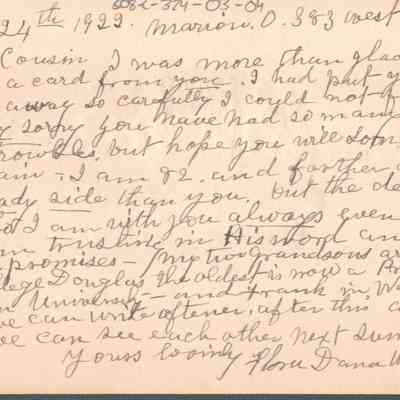 24th 1922. Marion, O. 383 West
Cousin I was more than glad
a card from you. I had put y
away so carefully I could not f
y sorry you have had so many
troubles, but hope you will soon
ain - I am 82. and farther
ady side than you. but the de
I am with you always even
m trusting in His word an
promises - My two Grandsons ar
lege Douglas the oldest is now a Pr
n University - and Frank in W
we can write oftener, after this a
we can see each other next Sum
Yours lovingly Flora Dana W